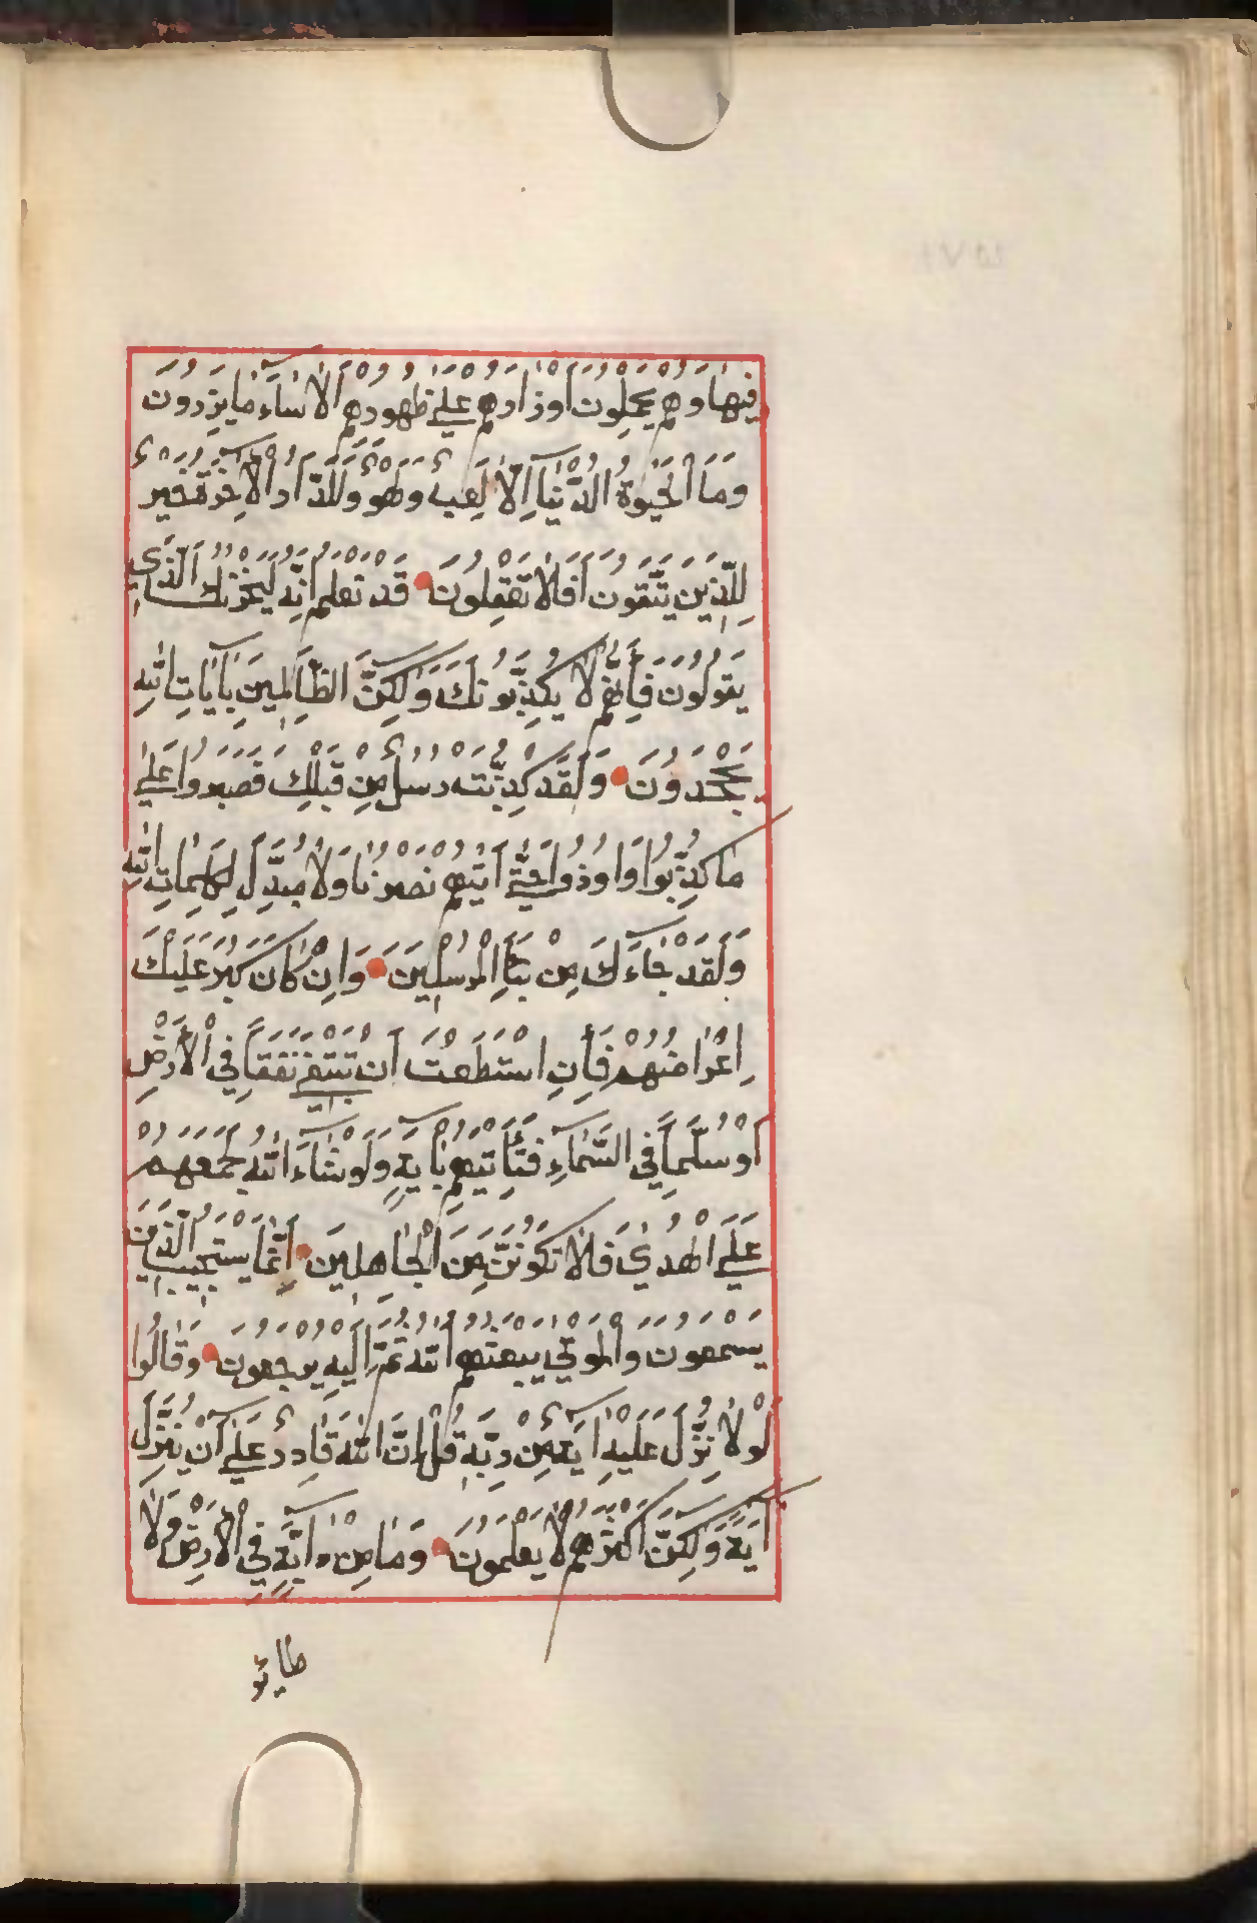 فِيهَا وَهُمْ يَحْمِلُونَ أَوْزَارَهُمْ عَلَى ظُهُورِهِمْ أَلَا سَاءَ مَا يَزِرُونَ
وَمَا الْحَيٰوةُ الدُّنْيَا إِلَّا لَعِبٌ وَلَهْوٌ وَلَلدَّارُ الْآخِرَةُ خَيْرٌ
لِلَّذِينَ يَتَّقُونَ أَفَلَا تَعْقِلُونَ قَدْ نَعْلَمُ إِنَّهُ لَيَحْزُنُكَ الَّذِي
يَقُولُونَ فَإِنَّهُمْ لَا يُكَذِّبُونَكَ وَلٰكِنَّ الظَّالِمِينَ بِآيَاتِ اللّٰهِ
يَجْحَدُونَ وَلَقَدْ كُذِّبَتْ رُسُلٌ مِنْ قَبْلِكَ فَصَبَرُوا عَلَى
مَا كُذِّبُوا وَأُوذُوا حَتَّى أَتٰيهُمْ نَصْرُنَا وَلَا مُبَدِّلَ لِكَلِمَاتِ اللّٰهِ
وَلَقَدْ جَاءَكَ مِنْ نَبَإِ الْمُرْسَلِينَ وَإِنْ كَانَ كَبُرَ عَلَيْكَ
إِعْرَاضُهُمْ فَإِنِ اسْتَطَعْتَ أَنْ تَبْتَغِيَ نَفَقًا فِي الْأَرْضِ
أَوْ سُلَّمًا فِي السَّمَاءِ فَتَأْتِيَهُمْ بِآيَةٍ وَلَوْ شَاءَ اللّٰهُ لَجَمَعَهُمْ
عَلَى الْهُدٰى فَلَا تَكُونَنَّ مِنَ الْجَاهِلِينَ إِنَّمَا يَسْتَجِيبُ الَّذِينَ
يَسْمَعُونَ وَالْمَوْتٰى يَبْعَثُهُمُ اللّٰهُ ثُمَّ إِلَيْهِ يُرْجَعُونَ وَقَالُوا
لَوْلَا نُزِّلَ عَلَيْهِ آيَةٌ مِنْ رَبِّهِ قُلْ إِنَّ اللّٰهَ قَادِرٌ عَلَى أَنْ يُنَزِّلَ
آيَةً وَلٰكِنَّ أَكْثَرَهُمْ لَا يَعْلَمُونَ وَمَا مِنْ دَابَّةٍ فِي الْأَرْضِ وَلَا
طائر